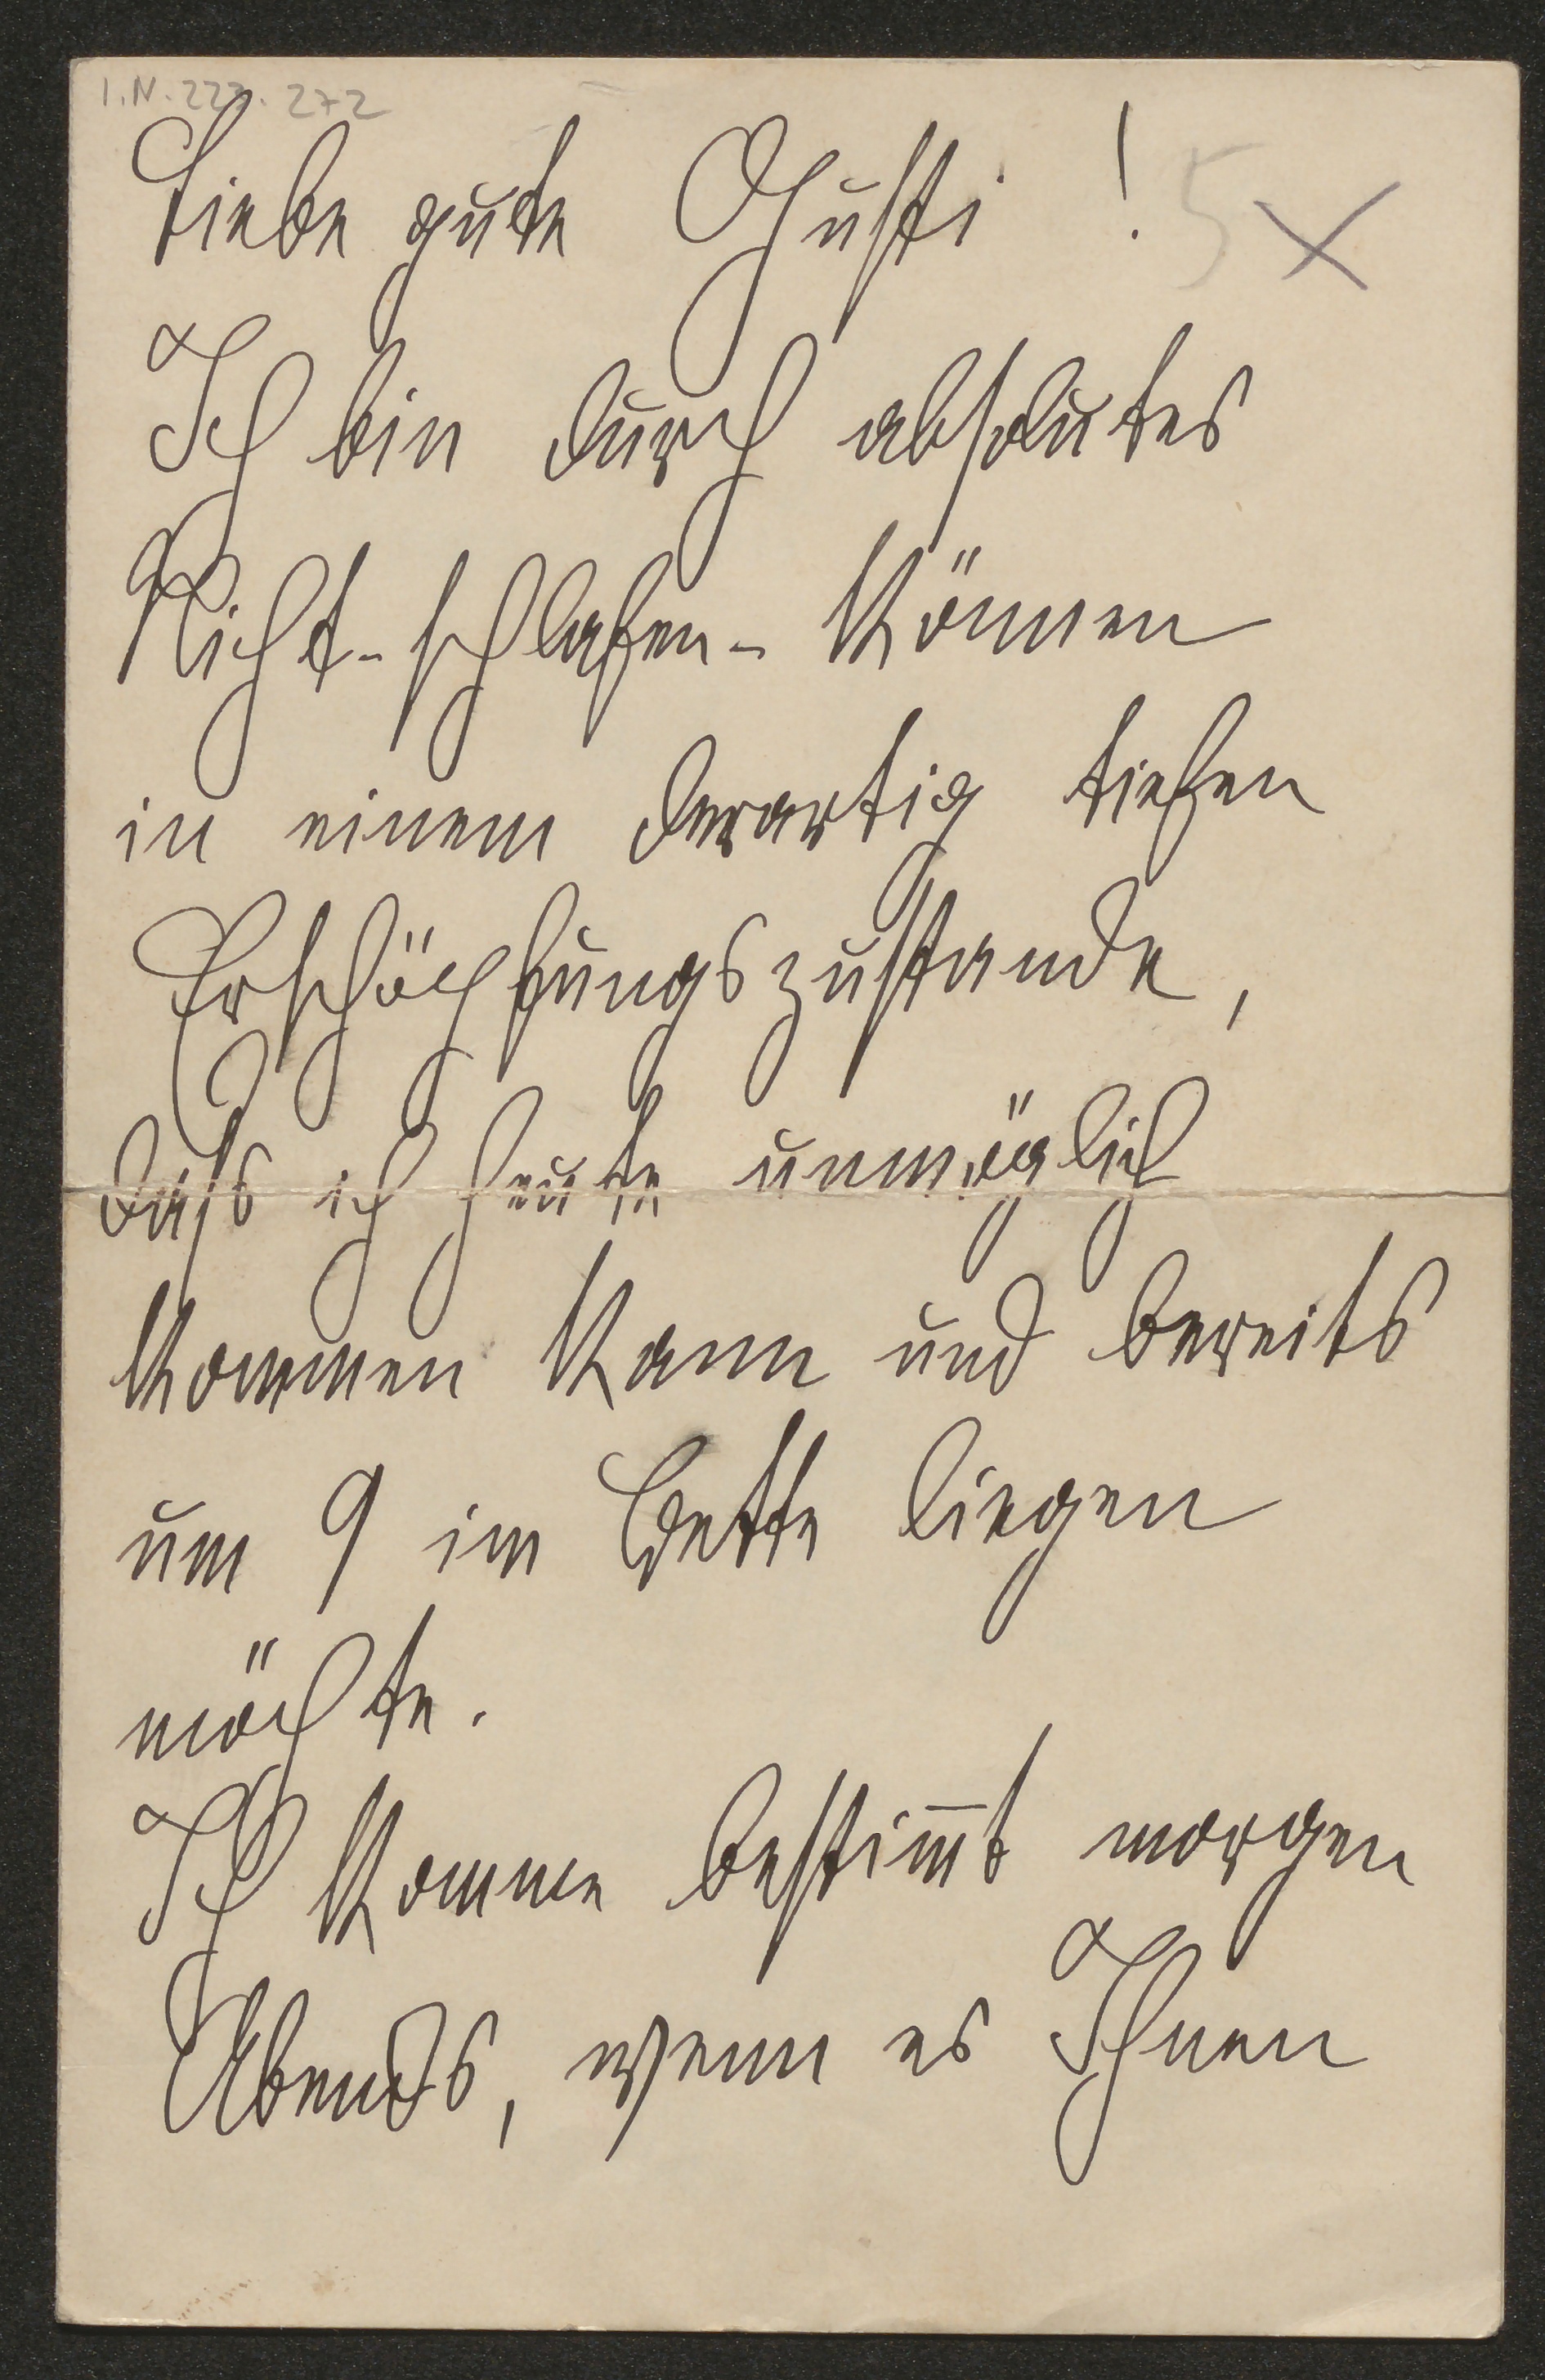 I.N. 227.272
Liebe gute Gusti !
5 X
Ich bin durch absolutes
Nicht-schlafen-Können
in einem derartig tiefen
Erschöpfungszustande,
dass ich heute unmöglich
kommen kann und bereits
um 9 im Bette liegen
möchte.
Ich komme bestim̅t morgen
Abends, wenn es Ihnen